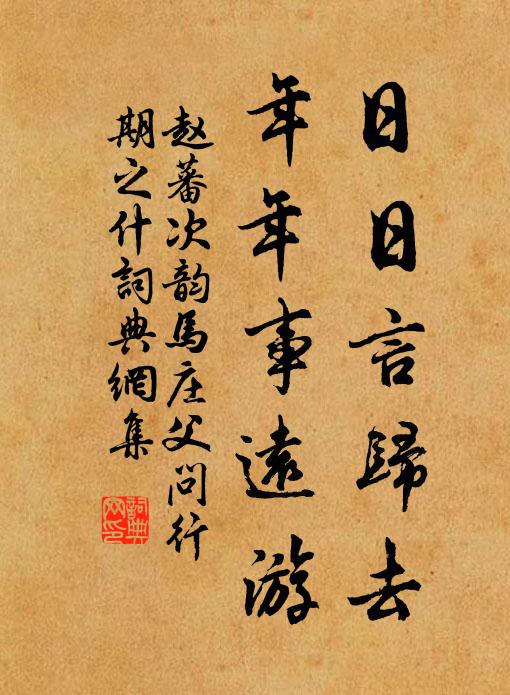 日日言歸去
年年事遠游
赵蕃次韵馬庄父問行
期之什詞典網集
詞典
网印